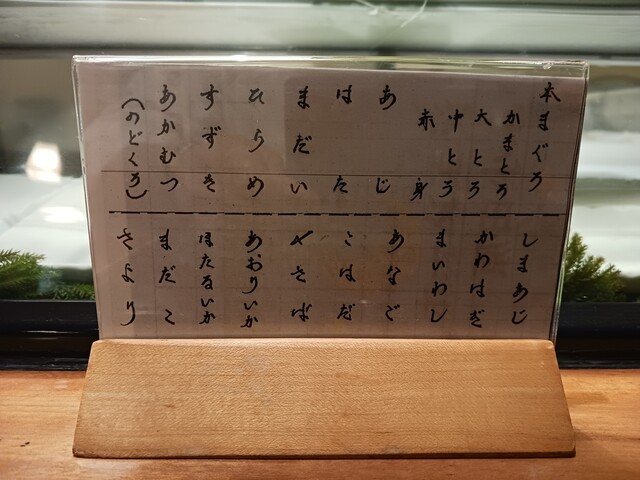 本まぐろ
かまとろ
大とろ
中とろ
赤身
あじ
はた
まだい
ひらめ
すずき
あかむつ
(のどくろ)
しまあじ
かわはぎ
まいわし
あなご
こはだ
〆さば
あおりいか
ほたるいか
まだこ
さより